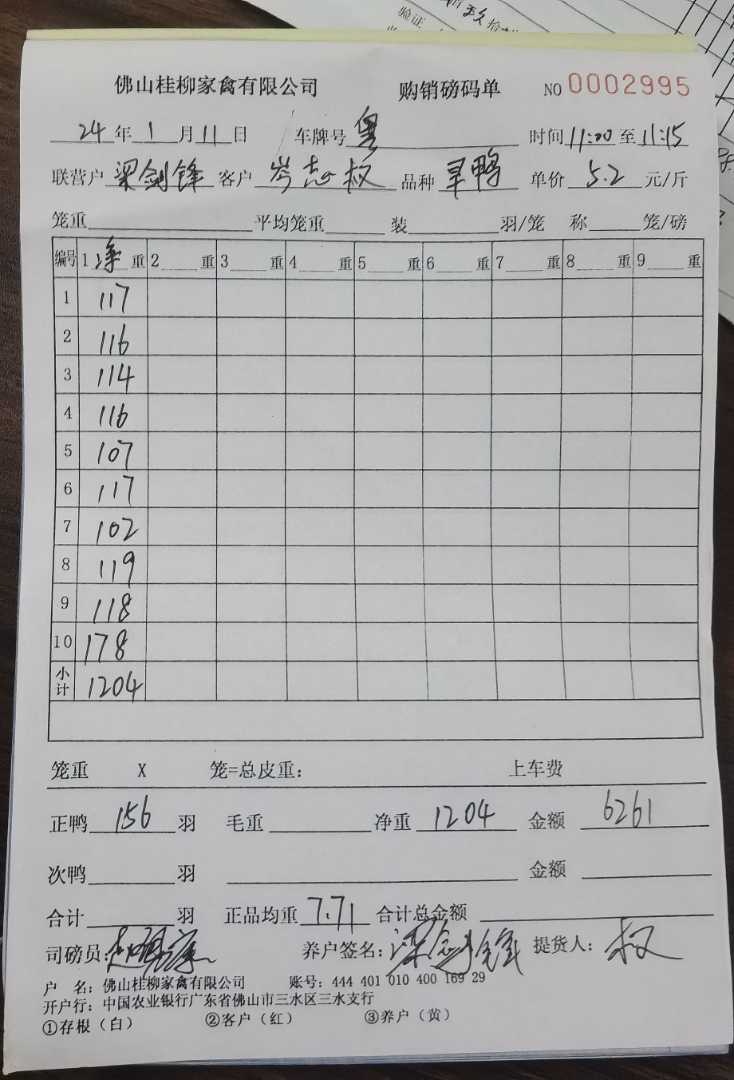 佛山桂柳家禽有限公司 购销磅码单 NO 0002995
24年1月11日 车牌号 粤 时间11:00至11:15
联营户 梁剑锋 客户 岑志权 品种 旱鸭 单价 5.2 元/斤
笼重 平均笼重 装 羽/笼 称 笼/磅
编号 1净重 2 重 3 重 4 重 5 重 6 重 7 重 8 重 9 重
1 117
2 116
3 114
4 116
5 107
6 117
7 102
8 119
9 118
10 178
小计 1204
笼重 X 笼=总皮重: 上车费
正鸭 156 羽 毛重 净重 1204 金额 6261
次鸭 羽 金额
合计 羽 正品均重 7.71 合计总金额
司磅员: 养户签名: 梁剑锋 提货人: 权
户 名: 佛山桂柳家禽有限公司 账号: 444 401 010 400 169 29
开户行: 中国农业银行广东省佛山市三水区三水支行
①存根(白) ②客户(红) ③养户(黄)